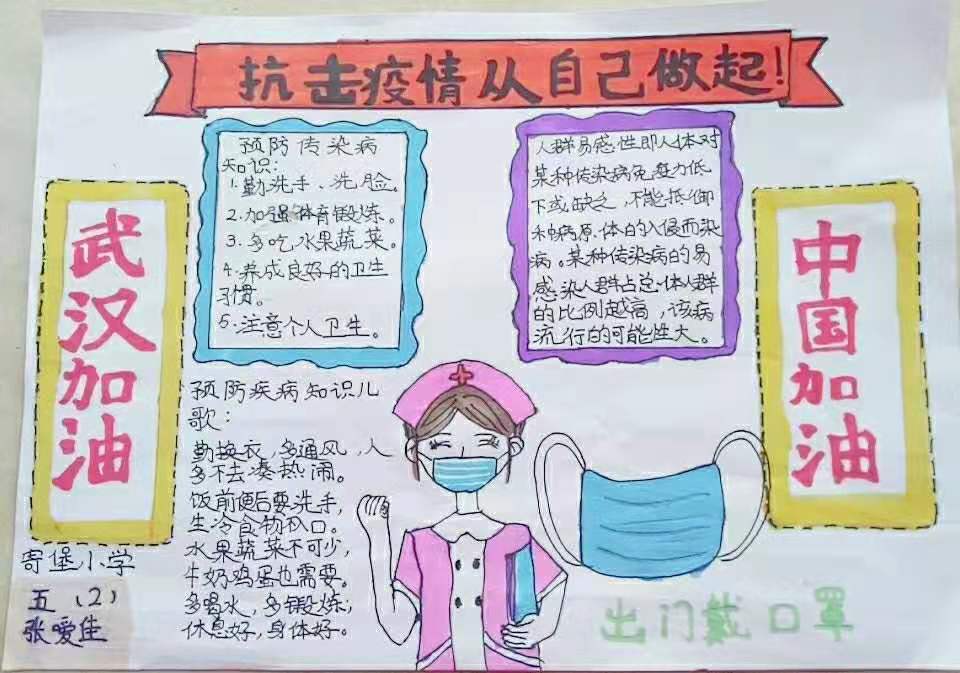 抗击疫情从自己做起!
武汉加油
预防传染病
知识:
1.勤洗手、洗脸。
2.加强体育锻炼。
3.多吃水果蔬菜。
4.养成良好的卫生
习惯。
5.注意个人卫生。
人群易感性即人体对
某种传染病免疫力低
下或缺乏,不能抵御
种病原体的入侵而染
病。某种传染病的易
感染人群占总体人群
的比例越高,该病
流行的可能性大。
中国加油
预防疾病知识儿
歌:
勤换衣,多通风,人
多不去凑热闹。
饭前便后要洗手,
生冷食物不入口。
水果蔬菜不可少,
牛奶鸡蛋也需要。
多喝水,多锻炼,
休息好,身体好。
寄堡小学
五(2)
张嗳佳
出门戴口罩